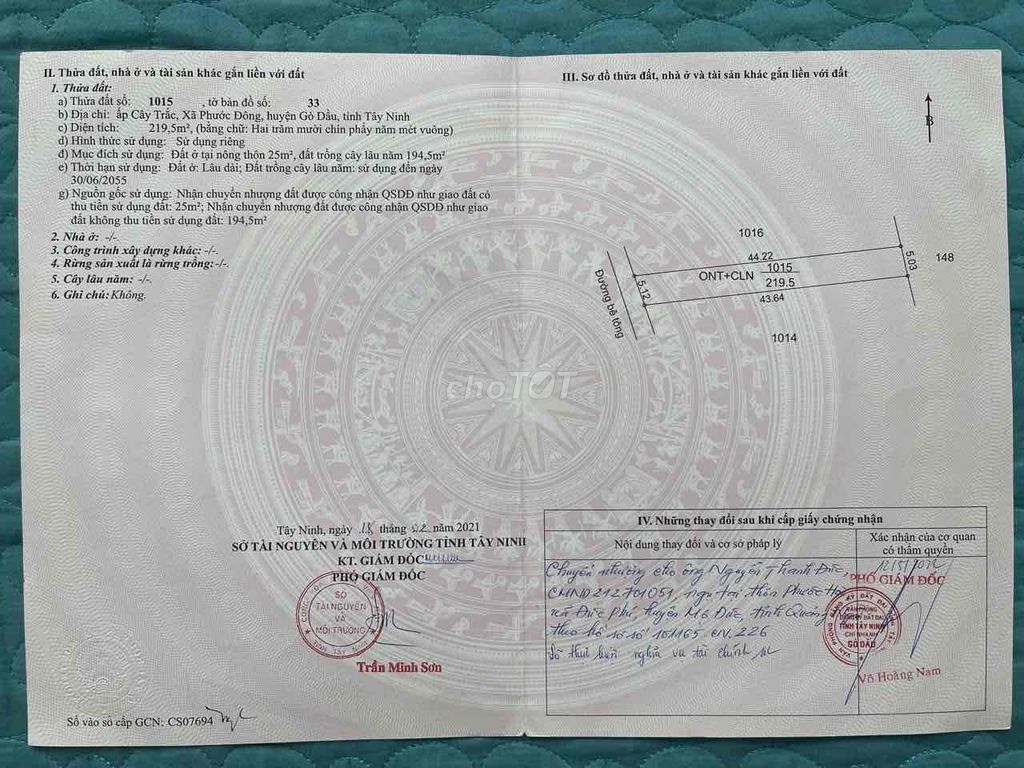 II. Thửa đất, nhà ở và tài sản khác gắn liền với đất
1. Thửa đất:
a) Thửa đất số: 1015 , tờ bản đồ số: 33
b) Địa chỉ: ấp Cây Trắc, Xã Phước Đông, huyện Gò Dầu, tỉnh Tây Ninh
c) Diện tích: 219,5m², (bằng chữ: Hai trăm mười chín phẩy năm mét vuông)
d) Hình thức sử dụng: Sử dụng riêng
đ) Mục đích sử dụng: Đất ở tại nông thôn 25m², đất trồng cây lâu năm 194,5m²
e) Thời hạn sử dụng: Đất ở: Lâu dài; Đất trồng cây lâu năm: sử dụng đến ngày
30/06/2055
g) Nguồn gốc sử dụng: Nhận chuyển nhượng đất được công nhận QSDĐ như giao đất có
thu tiền sử dụng đất: 25m²; Nhận chuyển nhượng đất được công nhận QSDĐ như giao
đất không thu tiền sử dụng đất: 194,5m²
2. Nhà ở: -/-
3. Công trình xây dựng khác: -/-.
4. Rừng sản xuất là rừng trồng:-/-.
5. Cây lâu năm: -/-.
6. Ghi chú: Không.
Tây Ninh, ngày 18 tháng 02 năm 2021
SỞ TÀI NGUYÊN VÀ MÔI TRƯỜNG TỈNH TÂY NINH
KT. GIÁM ĐỐC
PHÓ GIÁM ĐỐC
SỞ
TÀI NGUYÊN
VÀ
MÔI TRƯỜNG
TỈNH TÂY NINH
Trần Minh Sơn
Số vào sổ cấp GCN: CS07694
III. Sơ đồ thửa đất, nhà ở và tài sản khác gắn liền với đất
B
1016
44.22
5.03
148
ONT+CLN
1015
219.5
5.12
43.64
Đường bê tông
1014
choTOT
IV. Những thay đổi sau khi cấp giấy chứng nhận
Nội dung thay đổi và cơ sở pháp lý
Xác nhận của cơ quan
có thẩm quyền
Chuyển nhượng cho ông Nguyễn Thanh Đức,
CMND 212701051, ngụ tại, thôn Phước
xã Đức Phú, huyện Mộ Đức, tỉnh Quảng
theo hồ sơ số 101165.CN.226
nghĩa vụ tài chính
PHÓ GIÁM ĐỐC
VĂN PHÒNG
ĐĂNG KÝ ĐẤT ĐAI
TỈNH TÂY NINH
CHI NHÁNH
GÒ DẦU
Võ Hoàng Nam